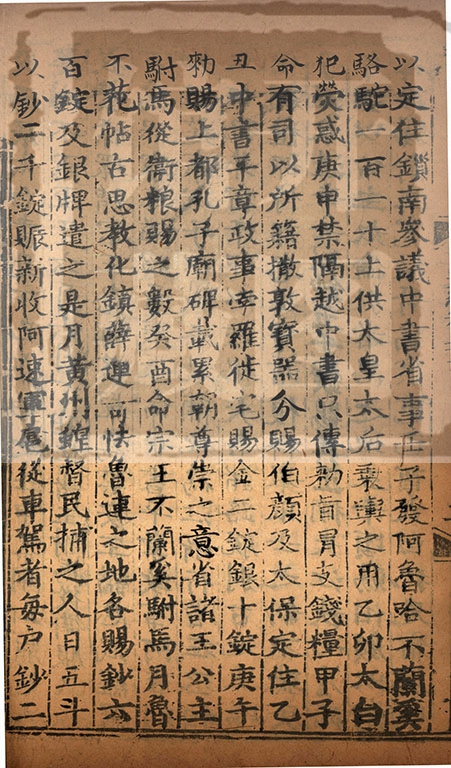 以定住鎖南參議中書省事壬子發阿魯哈不蘭奚
駱駝一百一十上供太皇太后乘輿之用乙卯太白
犯熒惑庚申禁隔越中書只傳勑旨冒支錢糧甲子
命有司以所籍撒敦寶器分賜伯顏及太保定住乙
丑中書平章政事孛羅徙宅賜金二錠銀十錠庚午
勑賜上都孔子廟碑載累朝尊崇之意省諸王公主
駙馬從衛粮賜之數癸酉命宗王不蘭奚駙馬月魯
不花帖古思教化鎮薛連可怯魯連之地各賜鈔六
百錠及銀牌遣之是月黃州蝗督民捕之人日五斗
以鈔二千錠賑新收阿速軍扈從車駕者每戶鈔二